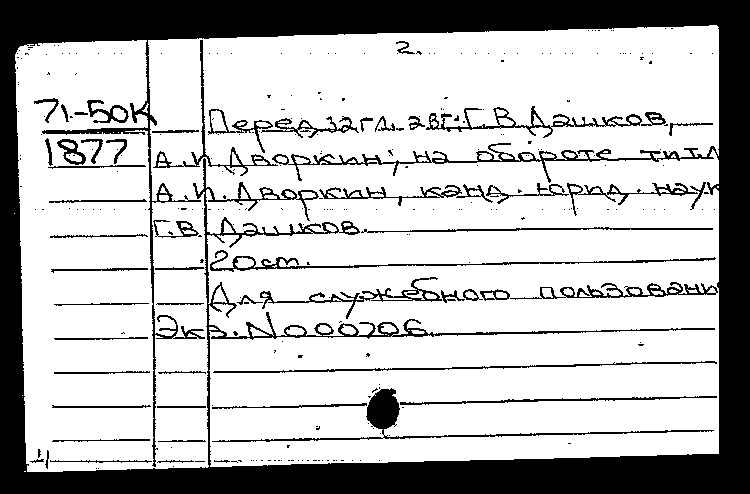 2.
71-50К
1877
Перед загл. авт.: Г.В. Дашков,
А.И. Дворкин; на обороте титл
А.И. Дворкин, канд. юрид. наук
Г.В. Дашков.
20 cm.
Для служебного пользовани
Экз. N 000706.